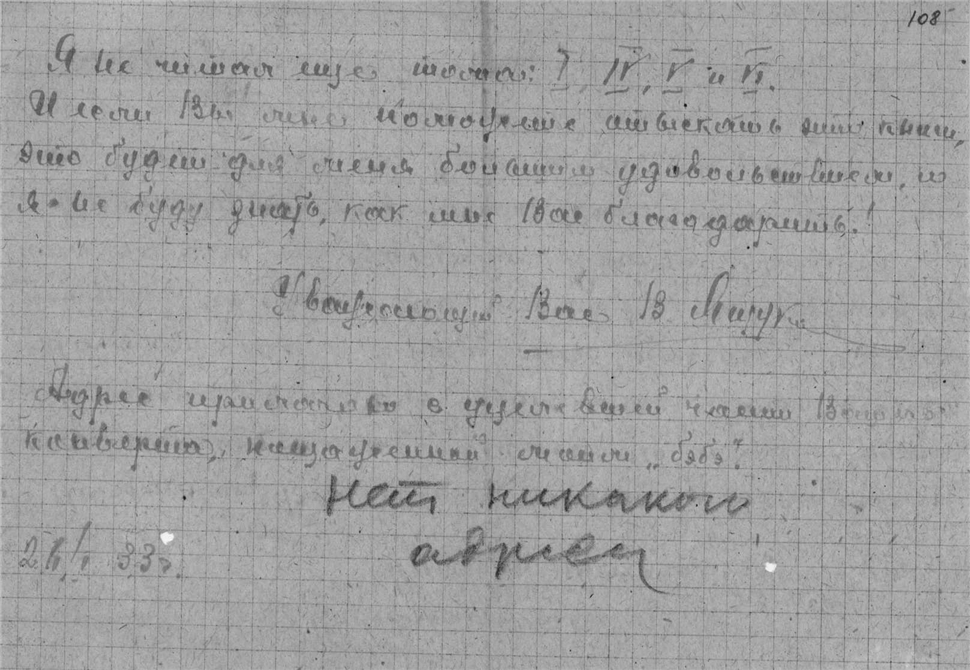 108
Я не читал еще тома: I, IV, V и VI.
И если Вы мне поможете отыскать эти книги,
это будет для меня большим удовольствием, и
я не буду знать, как мне Вас благодарить!
Уважающий Вас В
Адрес в уцелевшей части Вашего
конверта, пощаженный моим „бэбэ“.
Нет никакого
адреса
33г.